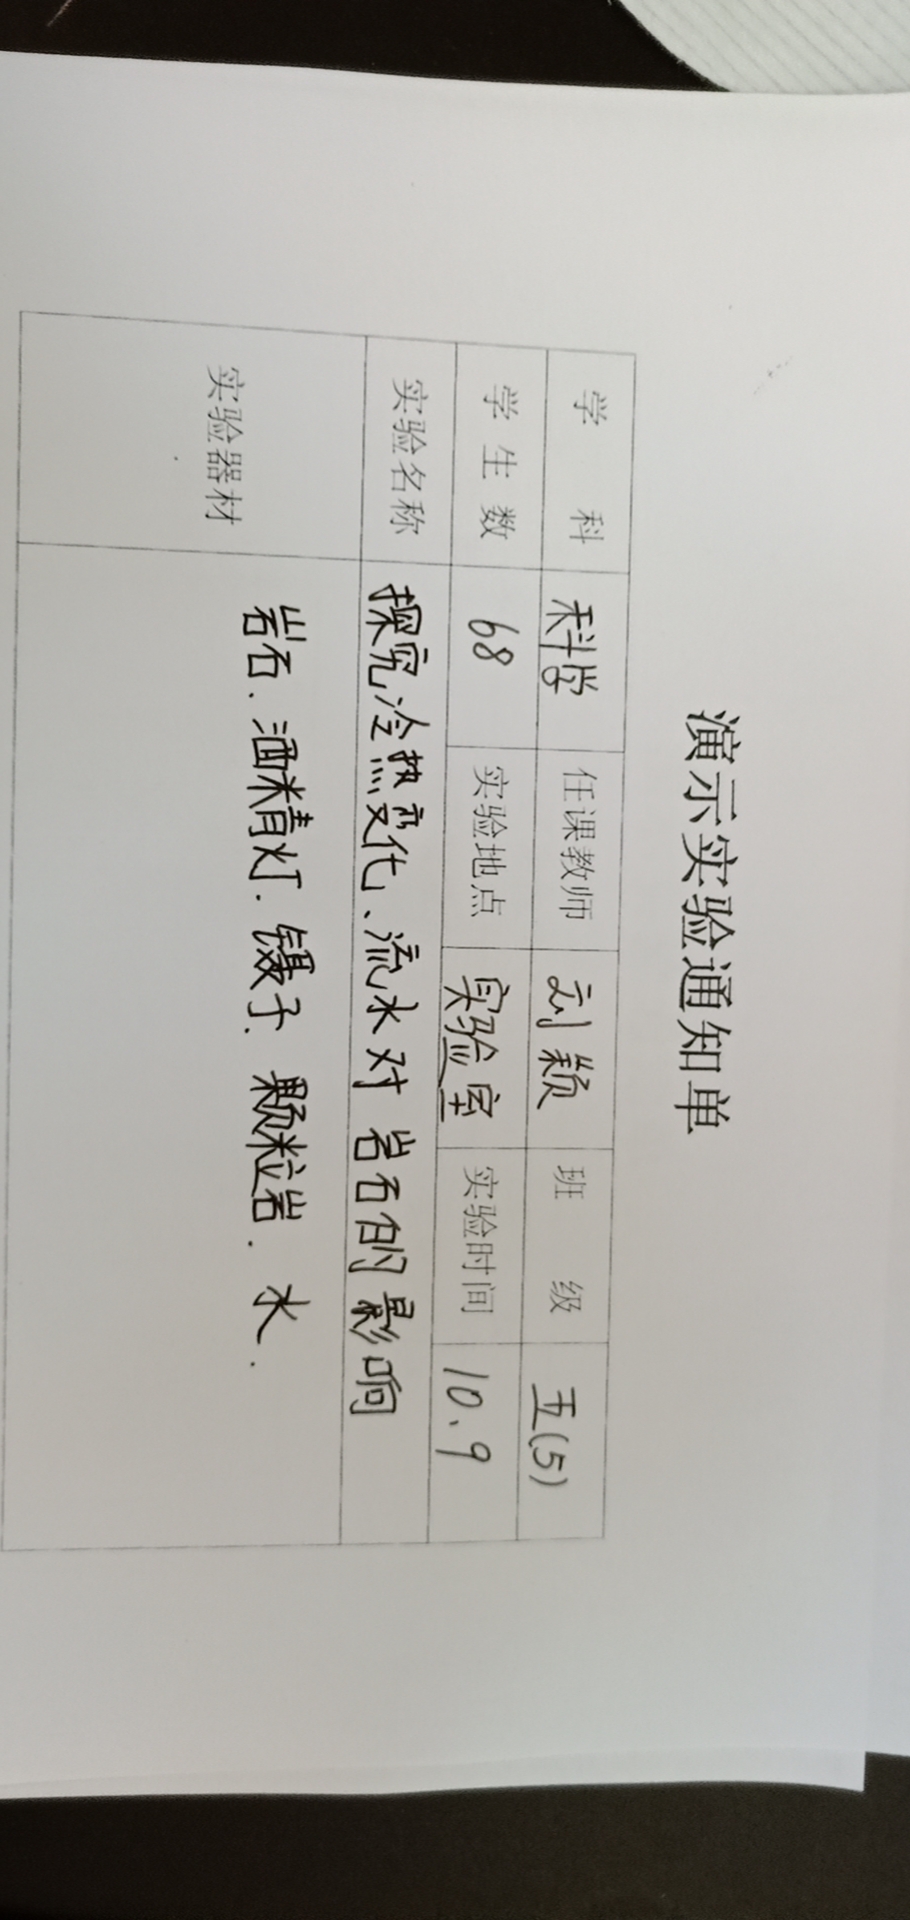 演示实验通知单
学 科 科学 任课教师 刘颖 班 级 五(5)
学 生 数 68 实验地点 实验室 实验时间 10、9
实验名称 探究冷热变化、流水对岩石的影响
实验器材 岩石、酒精灯、镊子、颗粒岩、水.